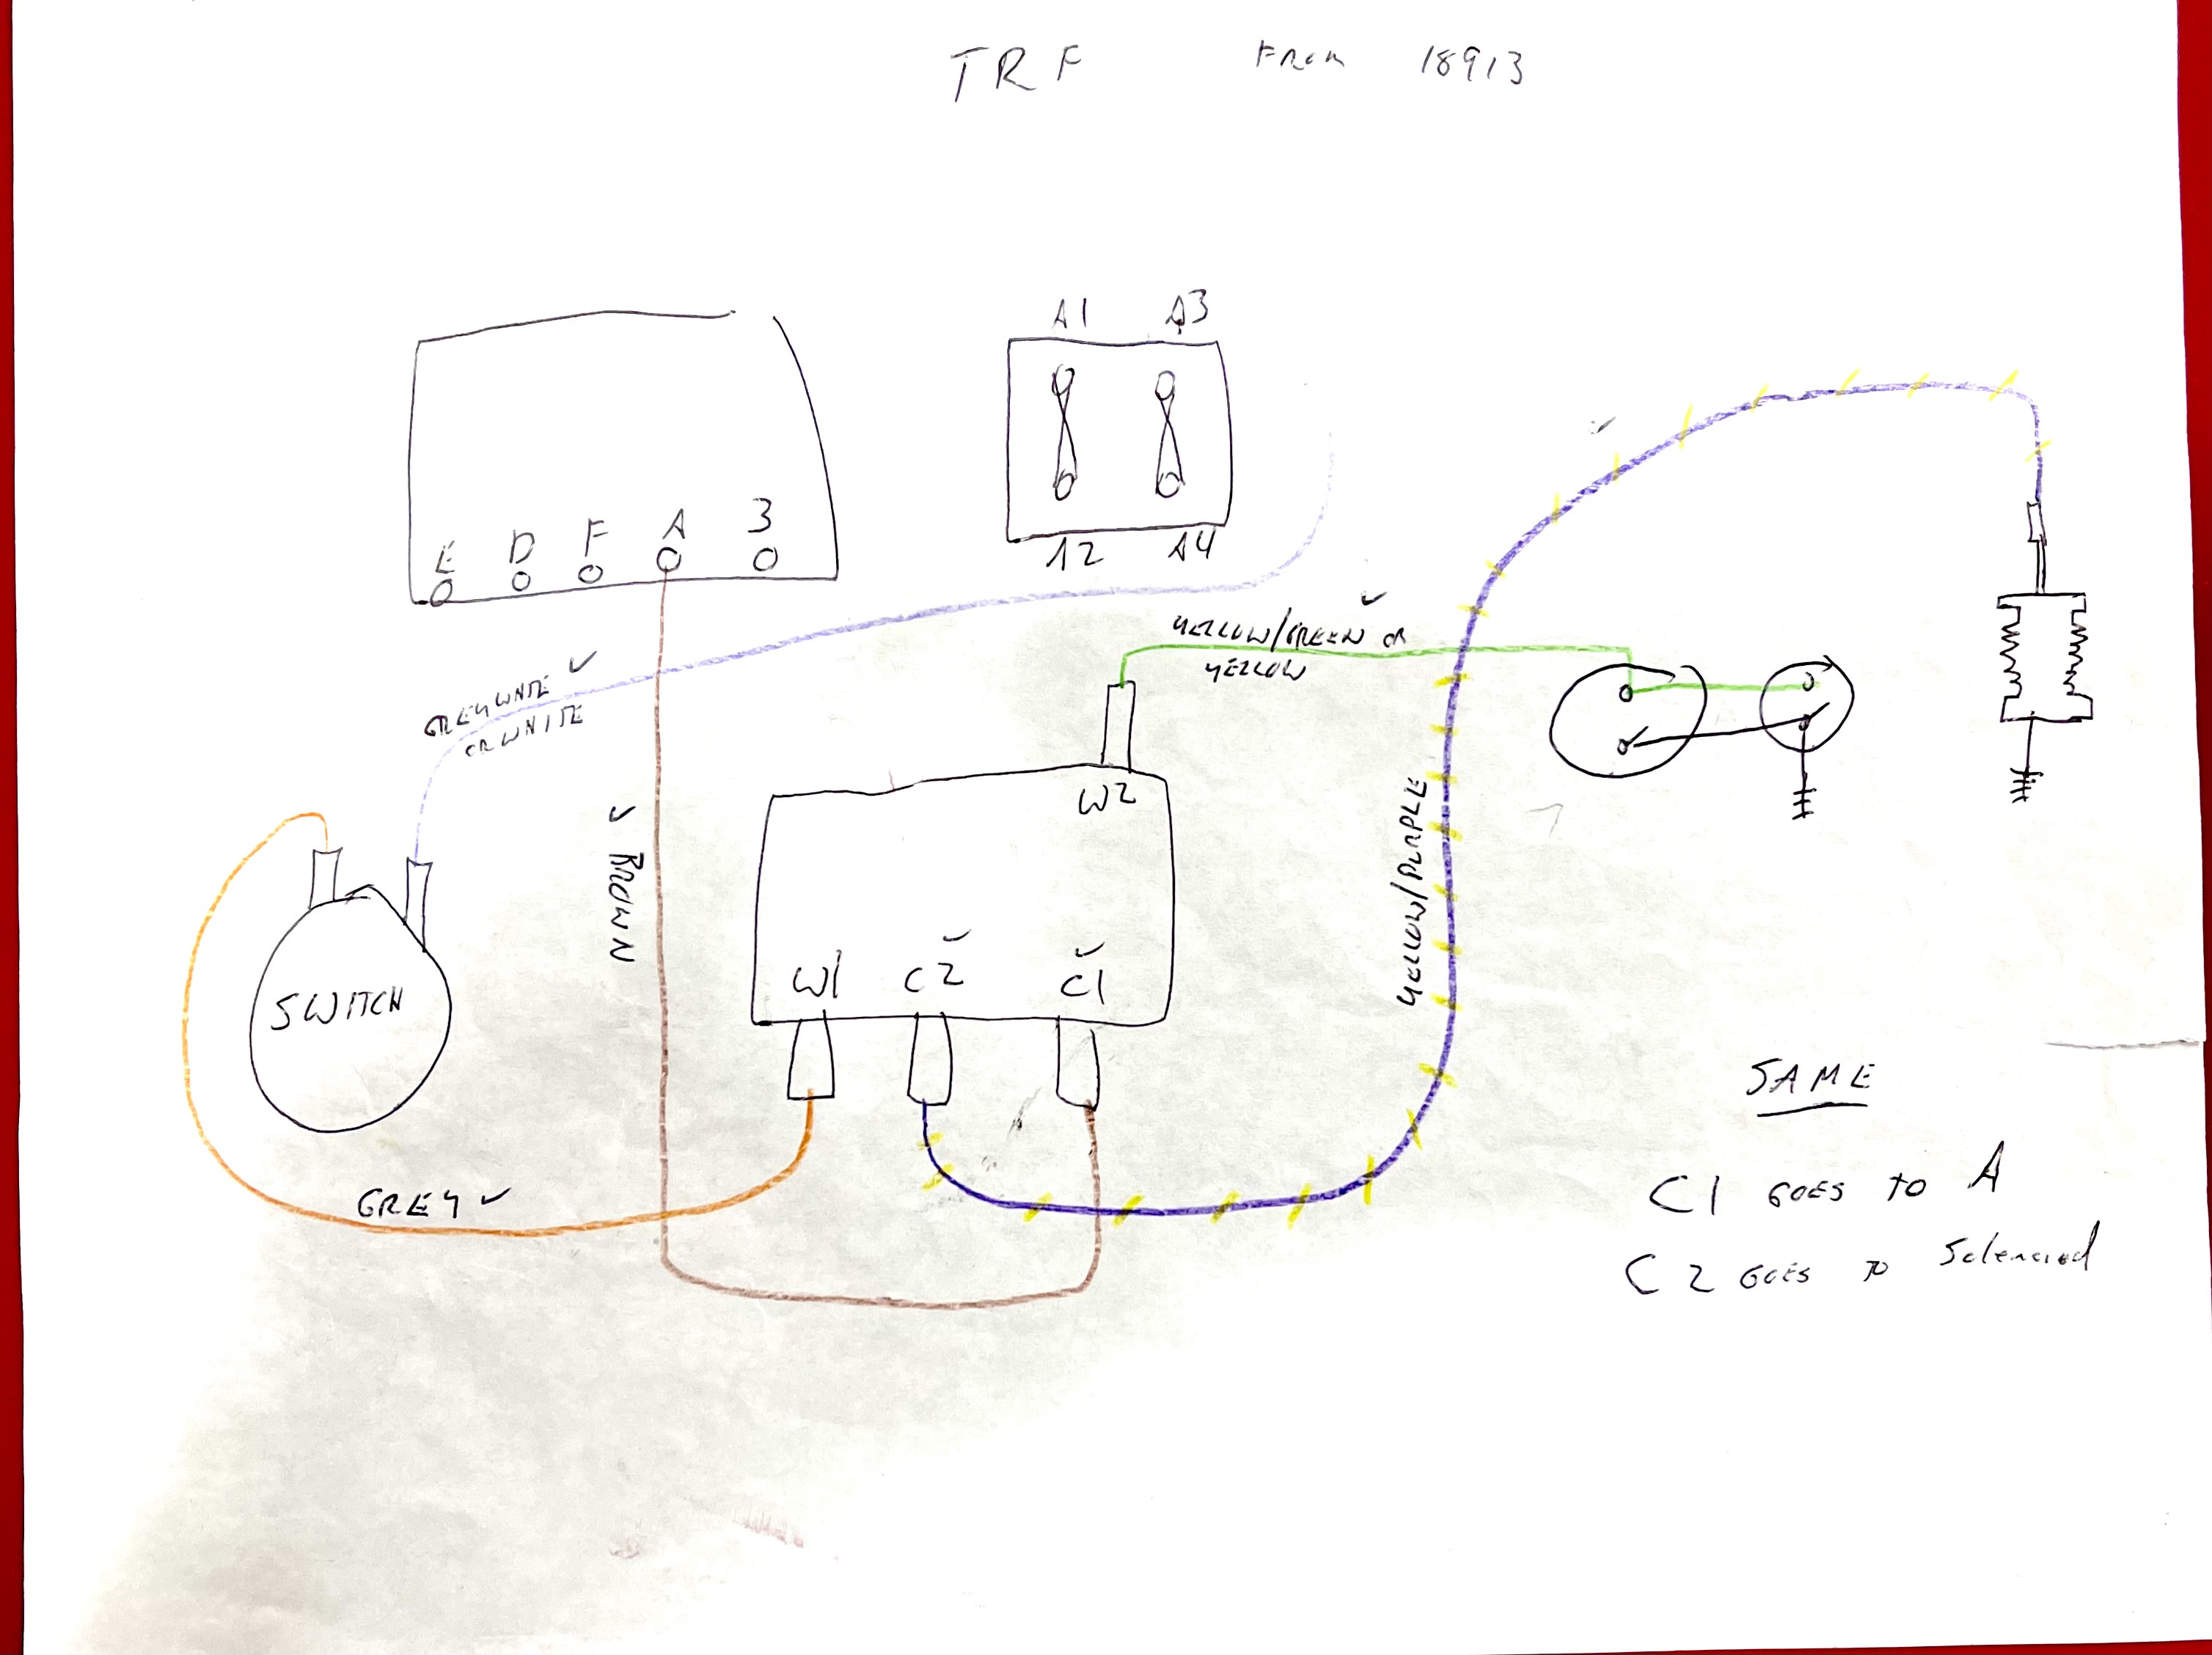 TRF FROM 18913
A1 A3
E D F A 3
A2 A4
YELLOW/GREEN OR
YELLOW
GREYWHITE
OR WHITE
BROWN
W2
YELLOW/PURPLE
SWITCH
W1 C2 C1
GREY
SAME
C1 GOES TO A
C2 GOES TO Solenoid